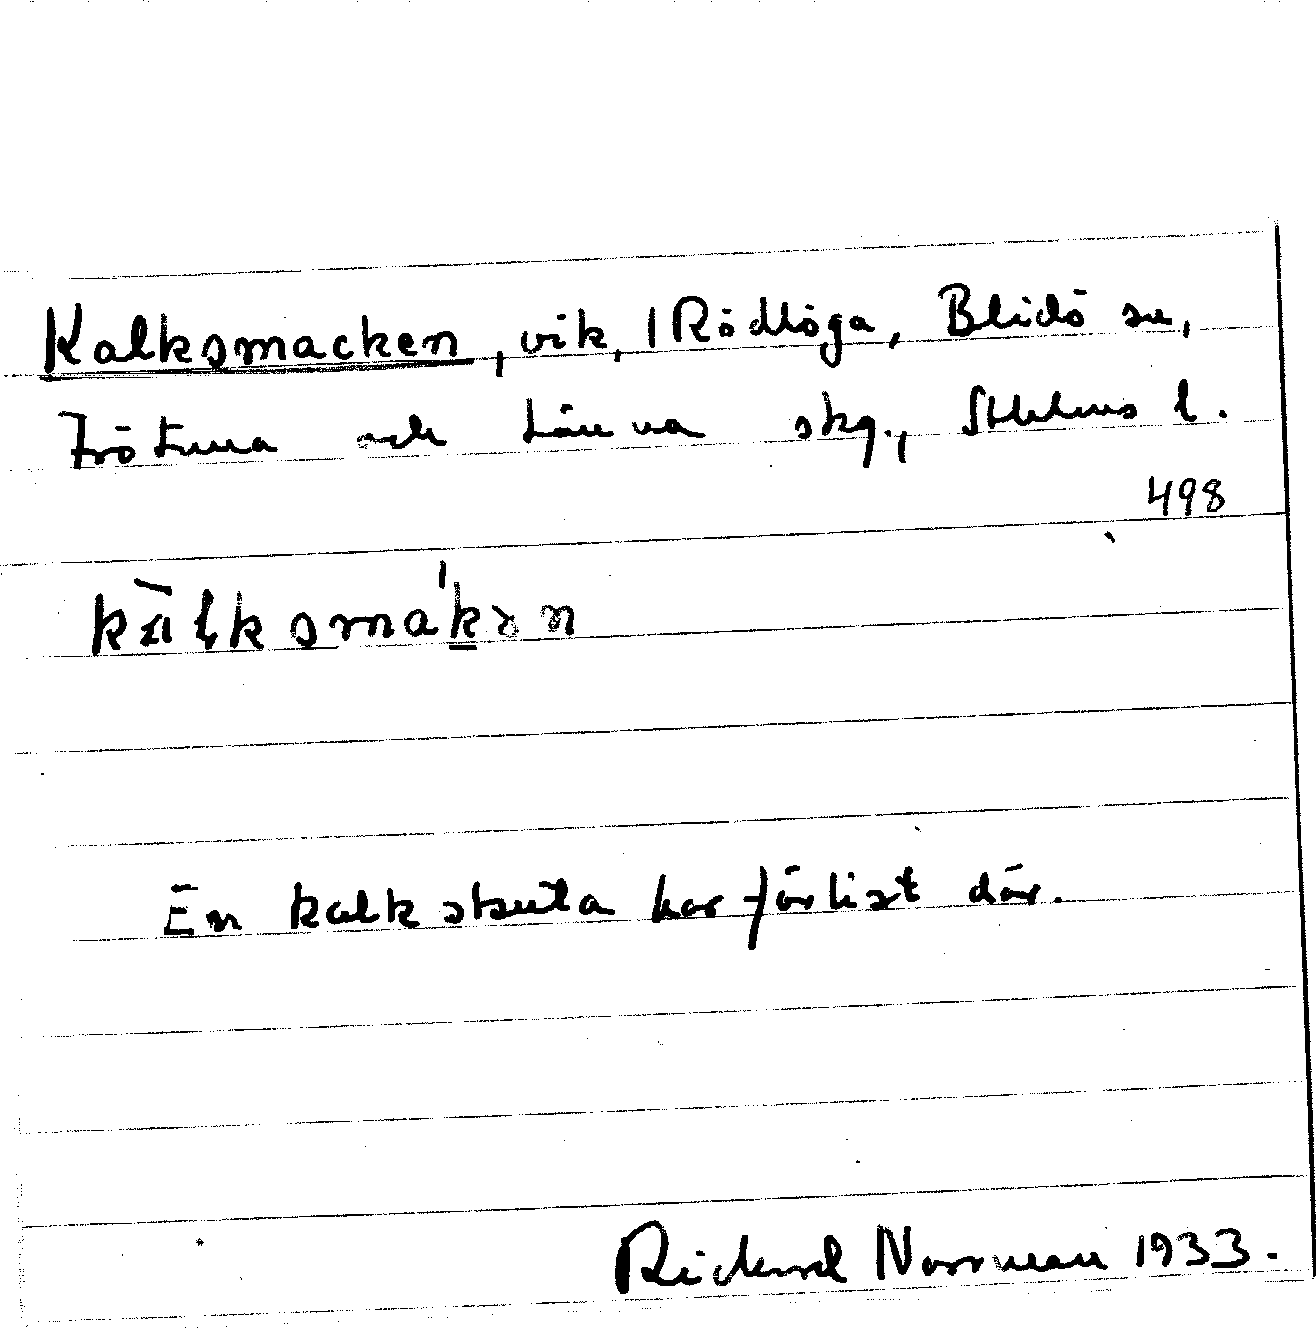 Kalksmacken, vik, 1 Rödlöga, Blidö sn,
Frötuna och Länna skg., Sthlms l.
498
En kalkskuta har förlist där.
Rickard Norrman 1933.